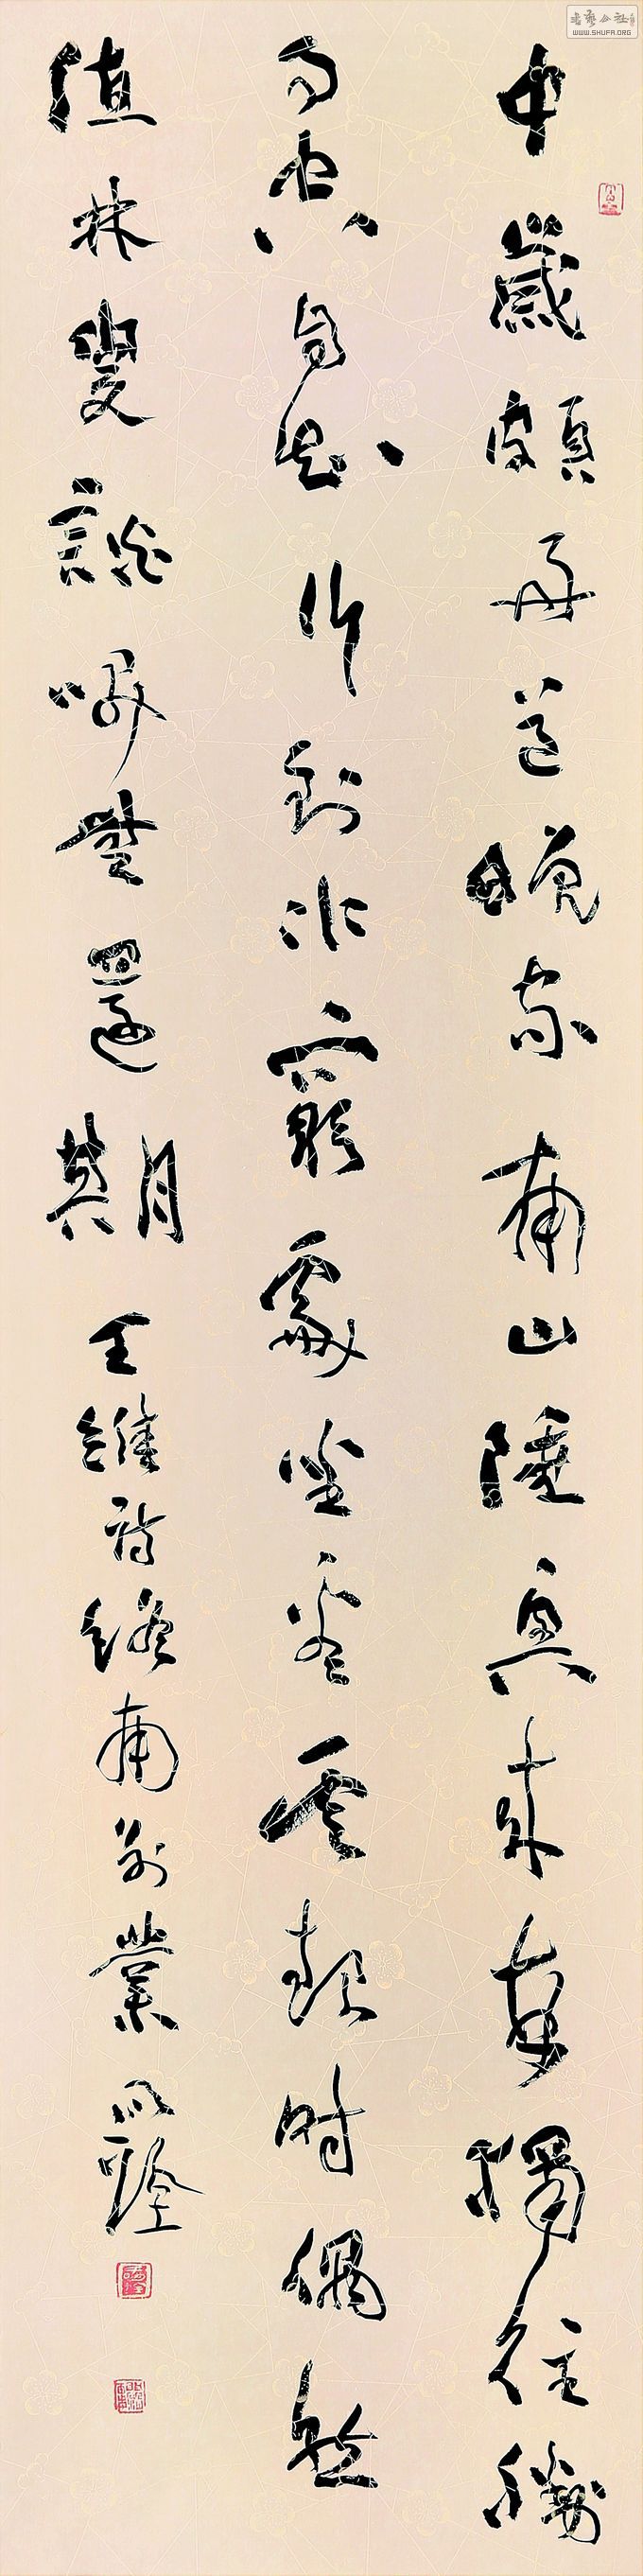 中歲頗好道晚家南山陲興來每獨往勝
事空自知行到水窮處坐看雲起時偶然
值林叟談咲無還期 王維詩終南別業
书艺公社
WWW.SHUFA.ORG